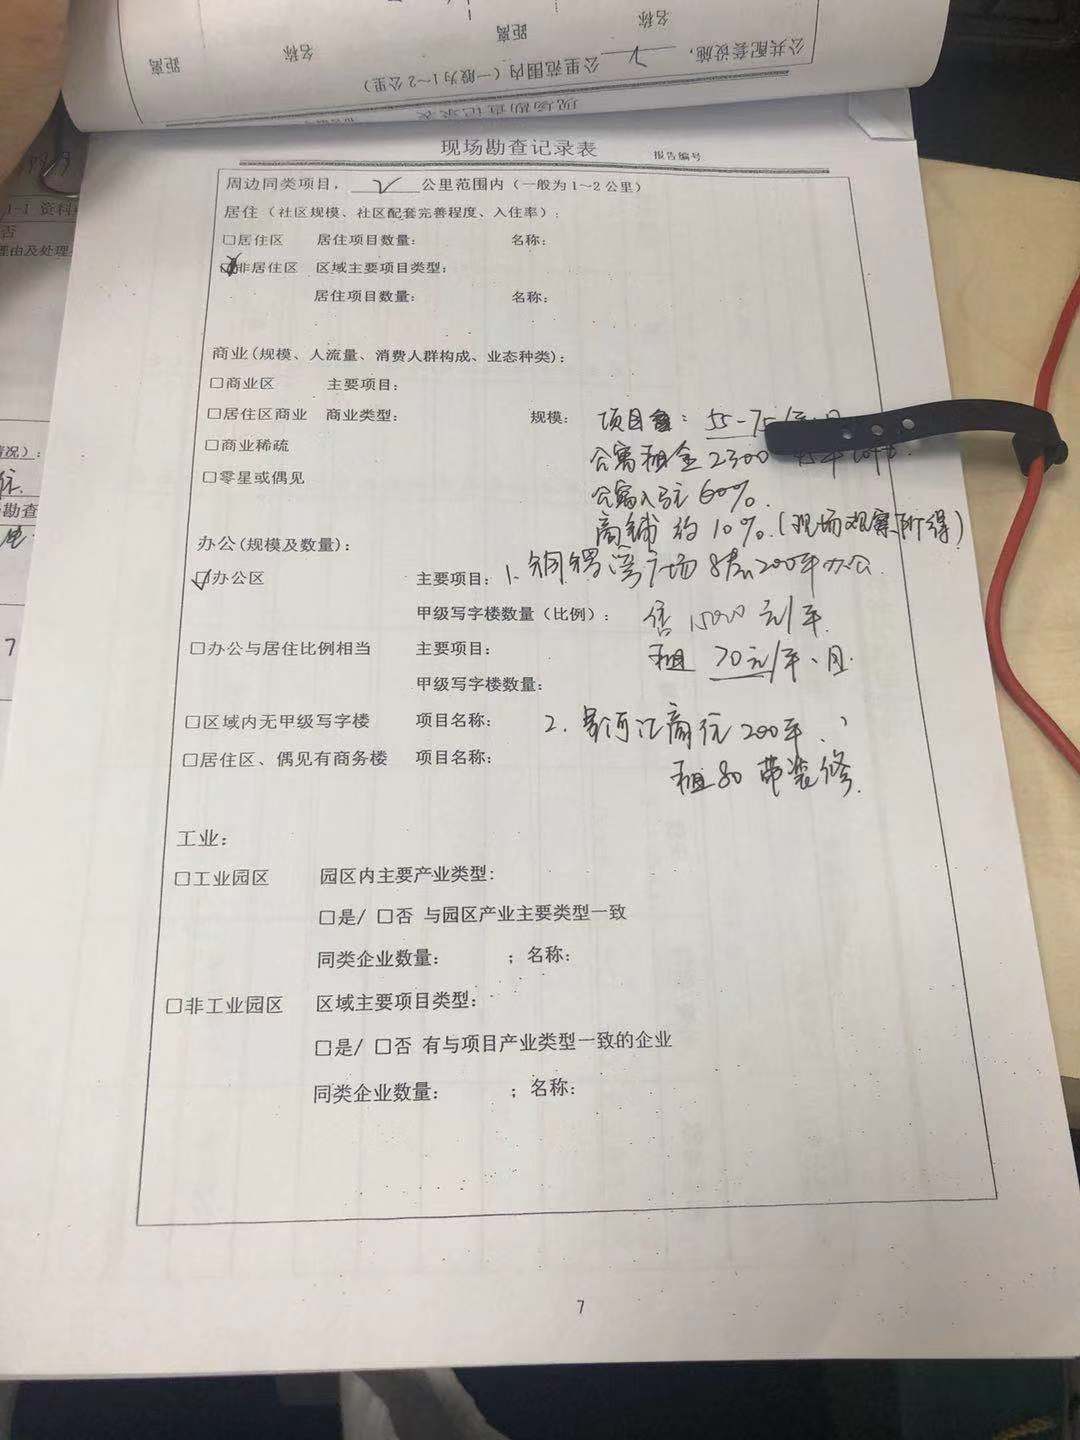 公共配套设施, 公里范围内(一般为1~2公里)
名称 距离 名称 距离
现场勘查记录表
现场勘查记录表 报告编号
周边同类项目, 2 公里范围内(一般为1~2公里)
居住(社区规模、社区配套完善程度、入住率):
□居住区 居住项目数量: 名称:
☑非居住区 区域主要项目类型:
居住项目数量: 名称:
商业(规模、人流量、消费人群构成、业态种类):
□商业区 主要项目:
□居住区商业 商业类型: 规模: 项目 : 55-75
□商业稀疏 公寓租金2300
□零星或偶见 公寓入驻60%.
商铺约10%.(现场观察所得)
办公(规模及数量):
☑办公区 主要项目: 1、铜锣湾广场 8层200平办公.
甲级写字楼数量(比例): 售15000元/平.
□办公与居住比例相当 主要项目: 租 70元/平、月.
甲级写字楼数量:
□区域内无甲级写字楼 项目名称: 2. 200平、
□居住区、偶见有商务楼 项目名称: 租80 带装修.
工业:
□工业园区 园区内主要产业类型:
□是/ □否 与园区产业主要类型一致
同类企业数量: ; 名称:
□非工业园区 区域主要项目类型:
□是/ □否 有与项目产业类型一致的企业
同类企业数量: ; 名称:
7